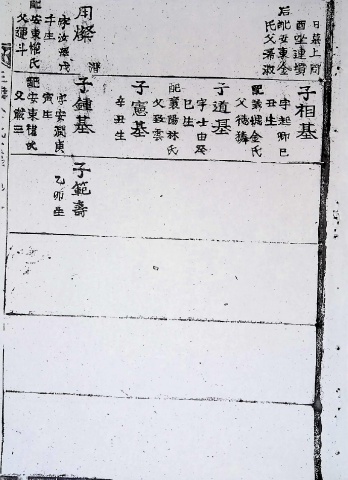 日墓上所
酉坐連塋
后配安東金
氏父濟淑
用燦
子生
配安東權氏
父運斗
子相基
字起卿己
丑生
金氏
父德
子道基
字士由癸
巳生
配襄陽林氏
父致雲
子憲基
辛丑生
子鍾基
字安潤庚
寅生
配安東權氏
父載三
子範壽
乙卯生